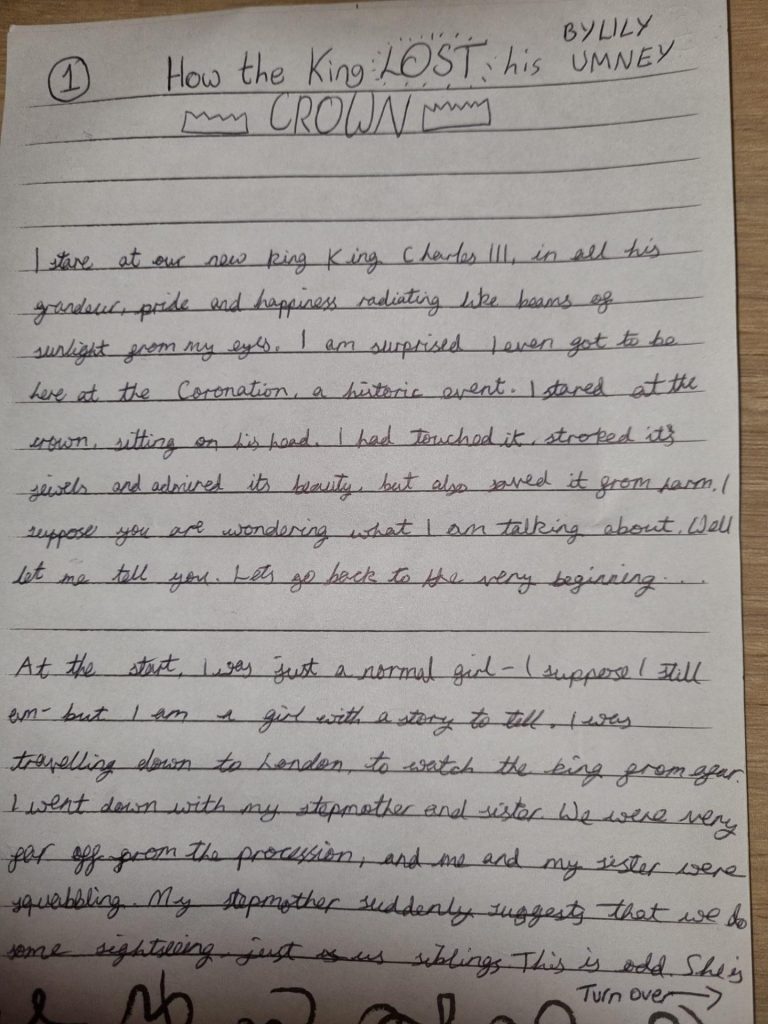 ① How the King LOST his
BY LILY
UMNEY
CROWN
I stare at our new king King Charles III, in all his
grandeur, pride and happiness radiating like beams of
sunlight from my eyes. I am surprised I even got to be
here at the Coronation, a historic event. I stared at the
crown, sitting on his head. I had touched it, stroked its
jewels and admired its beauty, but also saved it from harm. I
suppose you are wondering what I am talking about. Well
let me tell you. Lets go back to the very beginning...
At the start, I was just a normal girl - I suppose I still
am- but I am a girl with a story to tell. I was
travelling down to London, to watch the king from afar.
I went down with my stepmother and sister. We were very
far off from the procession, and me and my sister were
squabbling. My stepmother suddenly suggests that we do
some sightseeing- just us siblings. This is odd. She is
Turn over →